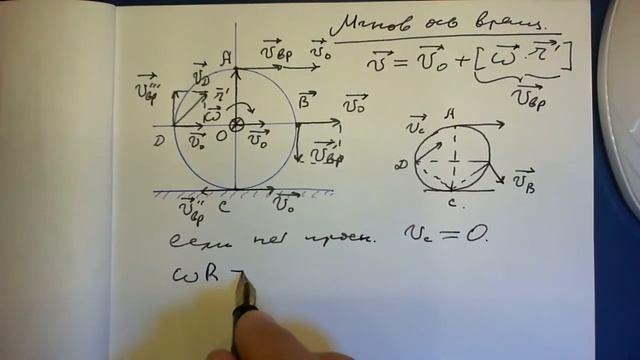 Мгнов ось вращ.
v⃗ = v⃗₀ + [ω⃗ · r⃗']
v⃗вр
A v⃗вр v⃗₀
v⃗'''вр v⃗D r⃗' ω⃗ B⃗ v⃗₀
D v⃗₀ O v⃗₀ v⃗'вр
v⃗''вр C v⃗₀
A
v⃗c
D v⃗B
C.
если нет просн. vc = 0.
ωR -